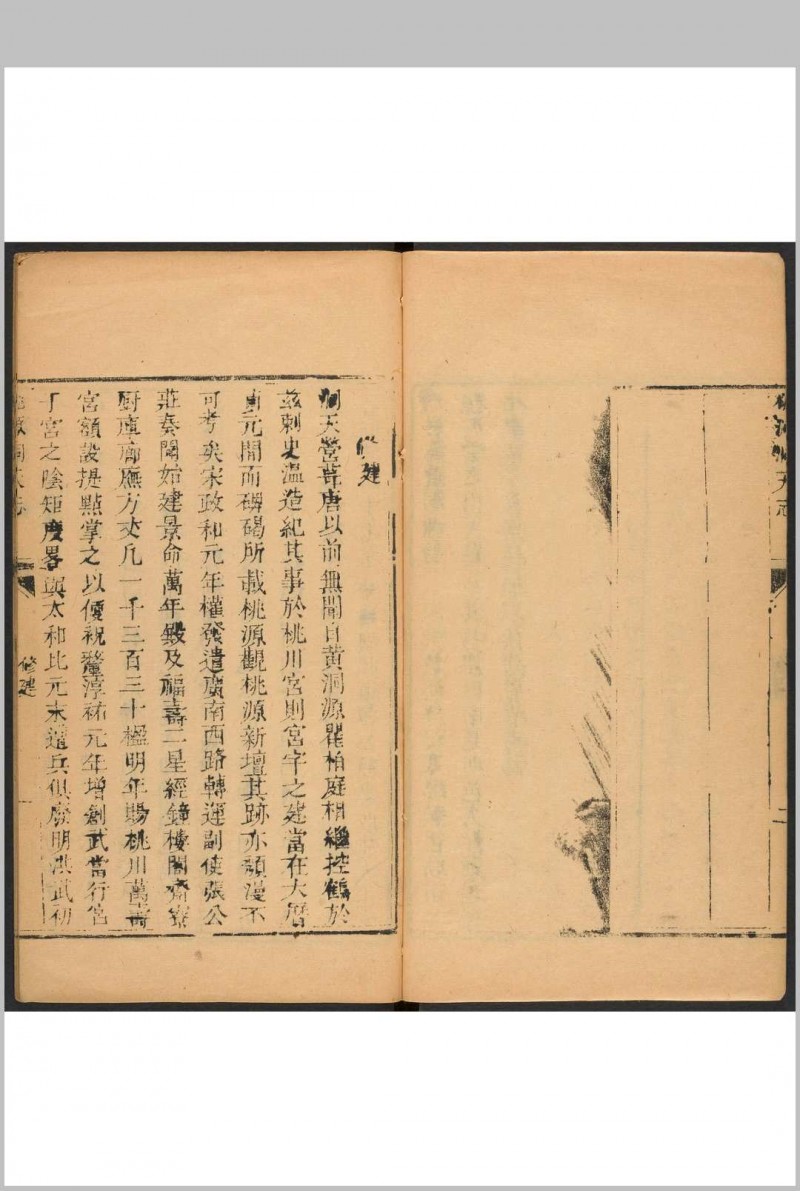 洞天志
二
修建
洞天營葺唐以前無聞自黃洞源瞿柏庭相繼控鶴於
茲刺史溫造紀其事於桃川宮則宮宇之建當在大曆
元間而碑碣所載桃源觀桃源新壇其跡亦頹漫不
可考矣宋政和元年權發遣廣南西路轉運副使張公
莊奏聞始建景命萬年殿及福壽二星經鐘樓閣齋寮
厨庫廊廡方丈凡一千三百三十楹明年賜桃川萬壽
宮額設提點掌之以優祝釐淳祐元年增創武當行宮
丁宮之陰矩度畧與太和比元末遭兵俱廢明洪武初
洞天志
修建